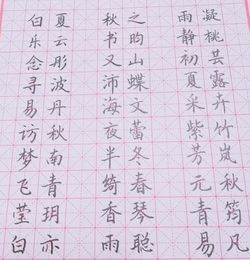 白夏 秋之 雨凝
乐云 书昀 静桃
念彤 又山 初芸
寻波 沛蝶 夏露
易丹 海文 采卉
访秋 夜蕾 紫
梦南 半冬 芳岚
飞青 绮春 元秋
莹玥 香琴 青筠
白亦 雨聪 易凡